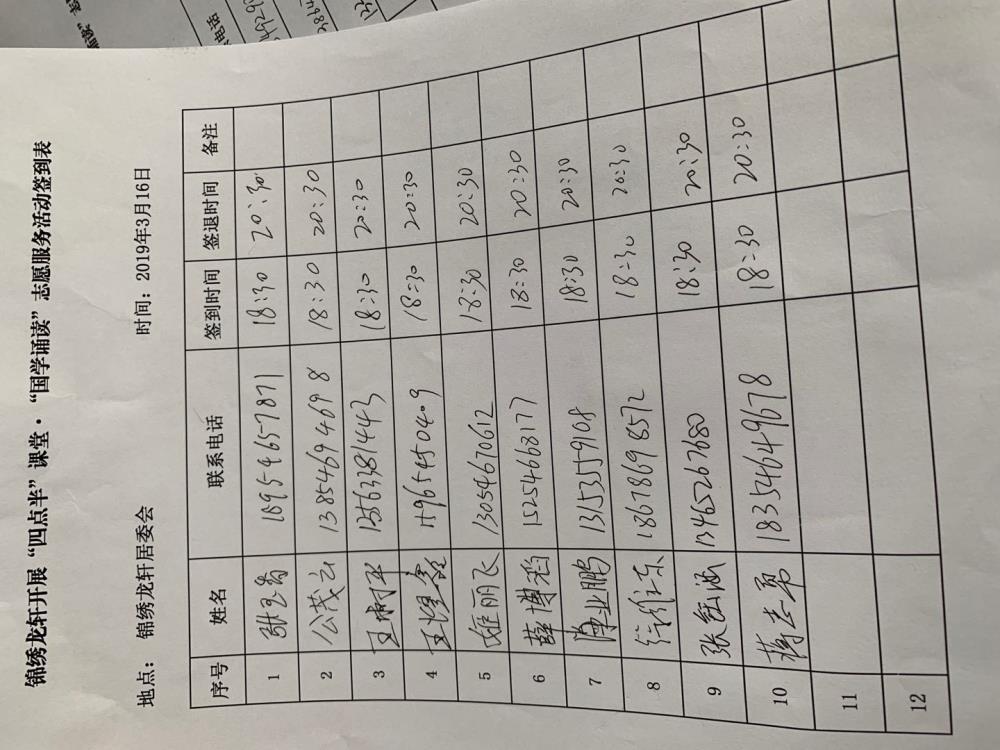 锦绣龙轩开展“四点半”课堂·“国学诵读”志愿服务活动签到表
地点： 锦绣龙轩居委会 时间：2019年3月16日
序号 姓名 联系电话 签到时间 签退时间 备注
1 18954657871 18:30 20:30
2 公茂云 13854694698 18:30 20:30
3 王树平 13563381443 18:30 20:30
4 18:30 20:30
5 姬丽飞 13054670612 18:30 20:30
6 薛博韬 15254668177 18:30 20:30
7 13153559108 18:30 20:30
8 18678698572 18:30 20:30
9 张鑫涵 13465267680 18:30 20:30
10 蒋志勇 18354649678 18:30 20:30
11
12
电话